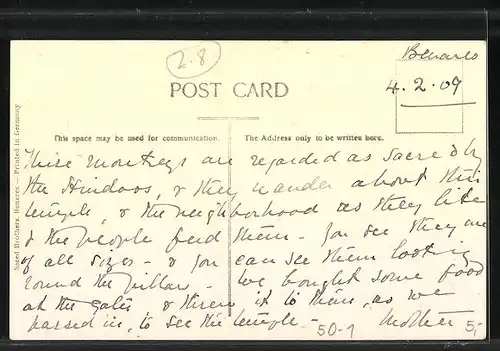 2-8
Benares
POST CARD
4.2.09
This space may be used for communication.
The Address only to be written here.
These monkeys are regarded as sacred by
the Hindoos, & they wander about their
temple, & the neighborhood as they like
& the people feed them - you see they are
of all sizes - & you can see them looking
round the pillar - We bought some food
at the gates & threw it to them, as we
passed in, to see the temple -
Mother
50-1
5,-
Saeed Brothers, Benares - Printed in Germany